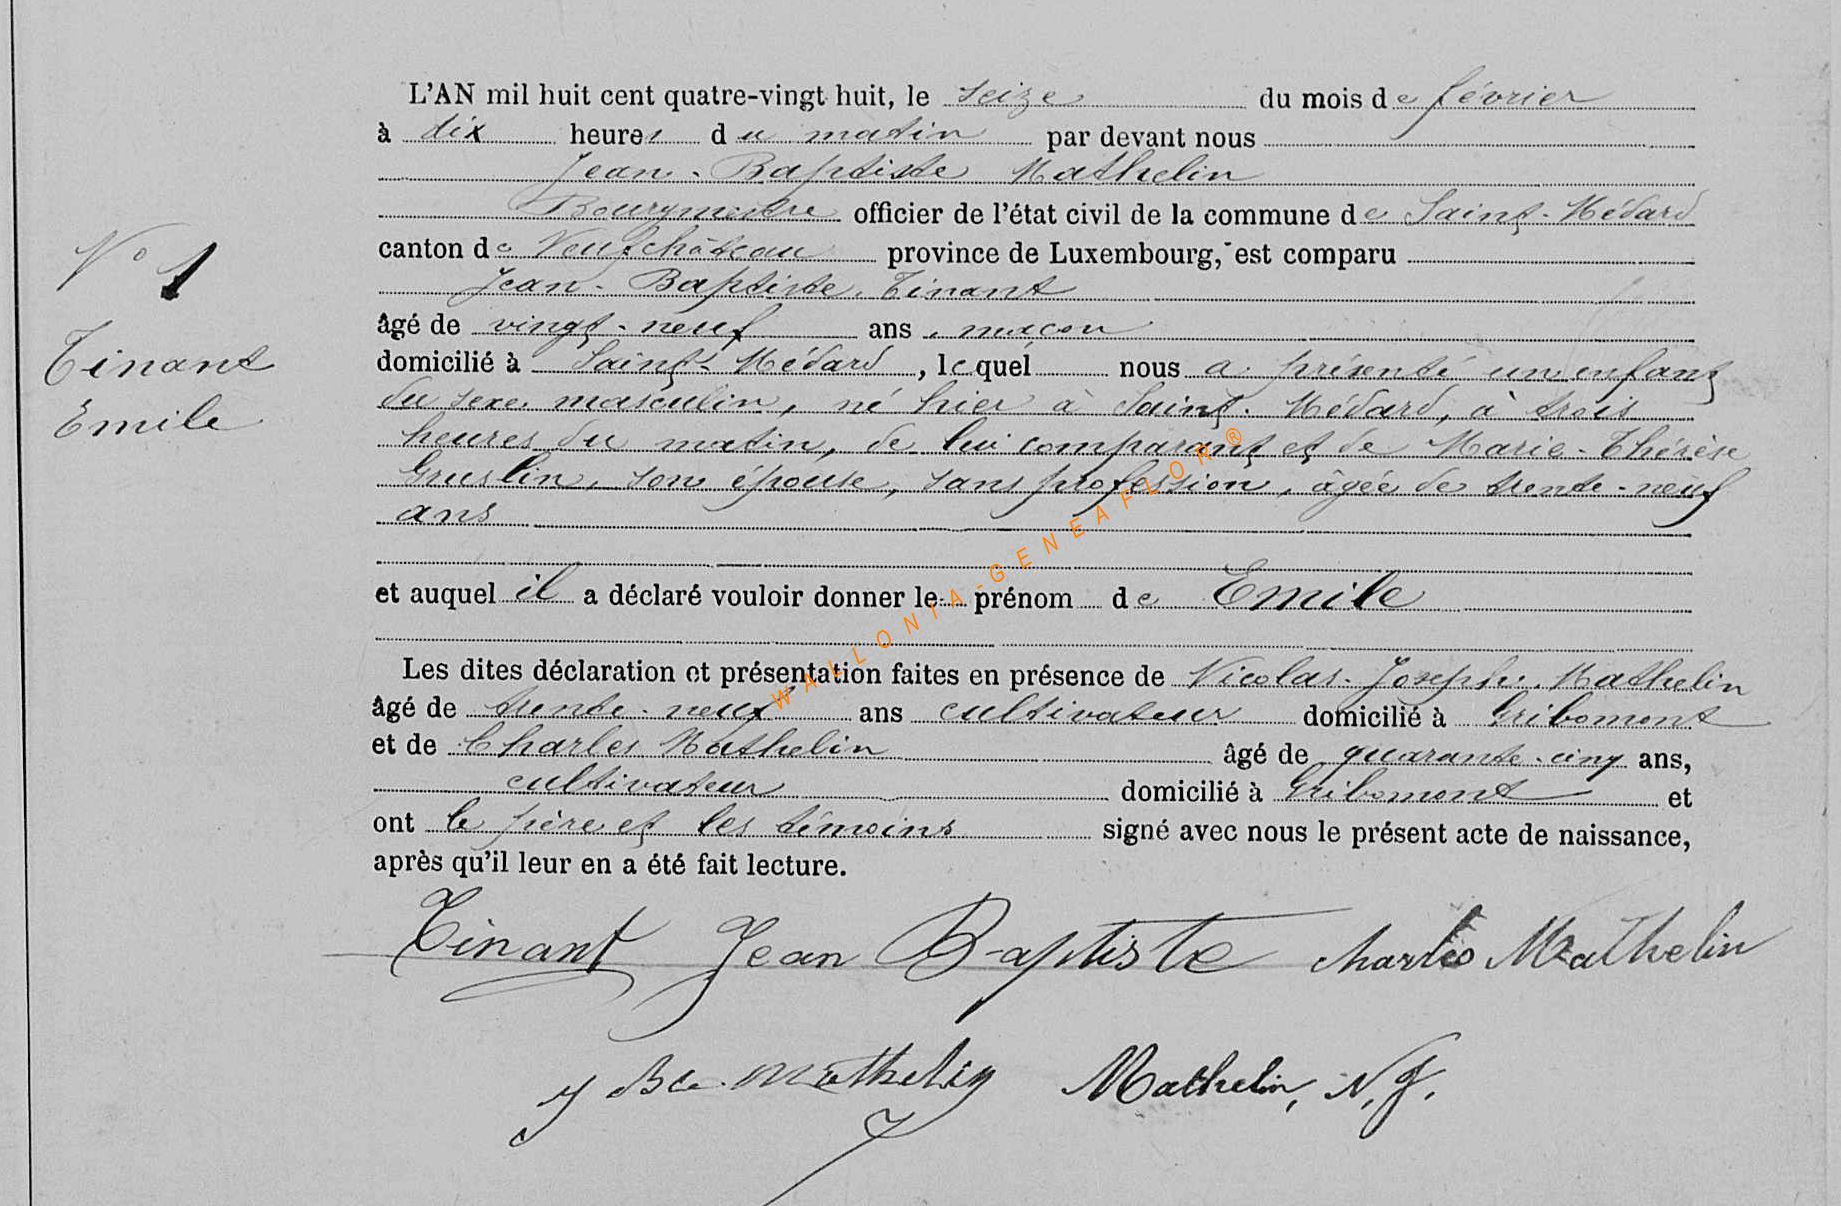 L'AN mil huit cent quatre-vingt huit, le seize du mois de février
à dix heures du matin par devant nous
Jean-Baptiste Mathelin
Bourgmestre officier de l'état civil de la commune de Saint-Médard
canton de Neufchâteau province de Luxembourg, est comparu
N° 1
Jean-Baptiste Tinant
âgé de vingt-neuf ans, maçon
Tinant
domicilié à Saint-Médard, lequel nous a présenté un enfant
du sexe masculin, né hier à Saint-Médard, à trois
Emile
heures du matin, de lui comparant et de Marie-Thérèse
Gruslin, son épouse, sans profession, âgée de trente-neuf
ans
et auquel il a déclaré vouloir donner le prénom de Emile
WALLONIA-GENEAFLOR®
Les dites déclaration et présentation faites en présence de Nicolas-Joseph Mathelin
âgé de trente-neuf ans cultivateur domicilié à Gribomont
et de Charles Mathelin âgé de quarante-cinq ans,
cultivateur domicilié à Gribomont et
ont le père et les témoins signé avec nous le présent acte de naissance,
après qu'il leur en a été fait lecture.
Tinant Jean Baptiste Charles Mathelin
J Bte Mathelin Mathelin, N. J.